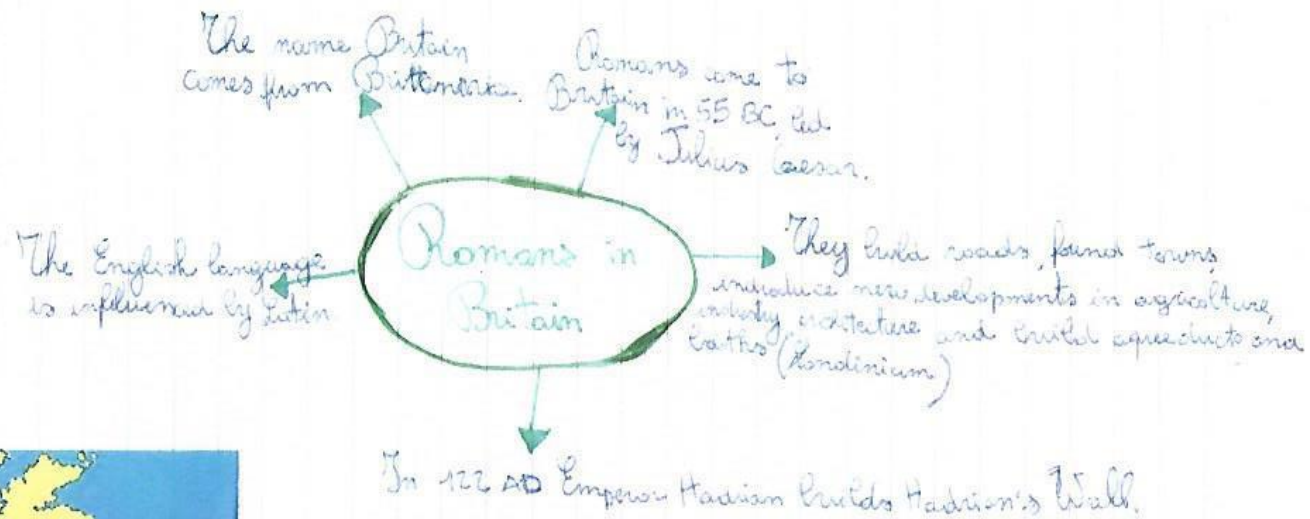 The name Britain
comes from
Romans come to
Britain in 55 BC, led
by Julius Caesar.
Romans in
Britain
The English language
is influenced by Latin
They build roads, found towns,
introduce new developments in agricolture,
industry and build aqueducts and
baths (Londinium)
In 122 AD Emperor Hadrian builds Hadrian's Wall.